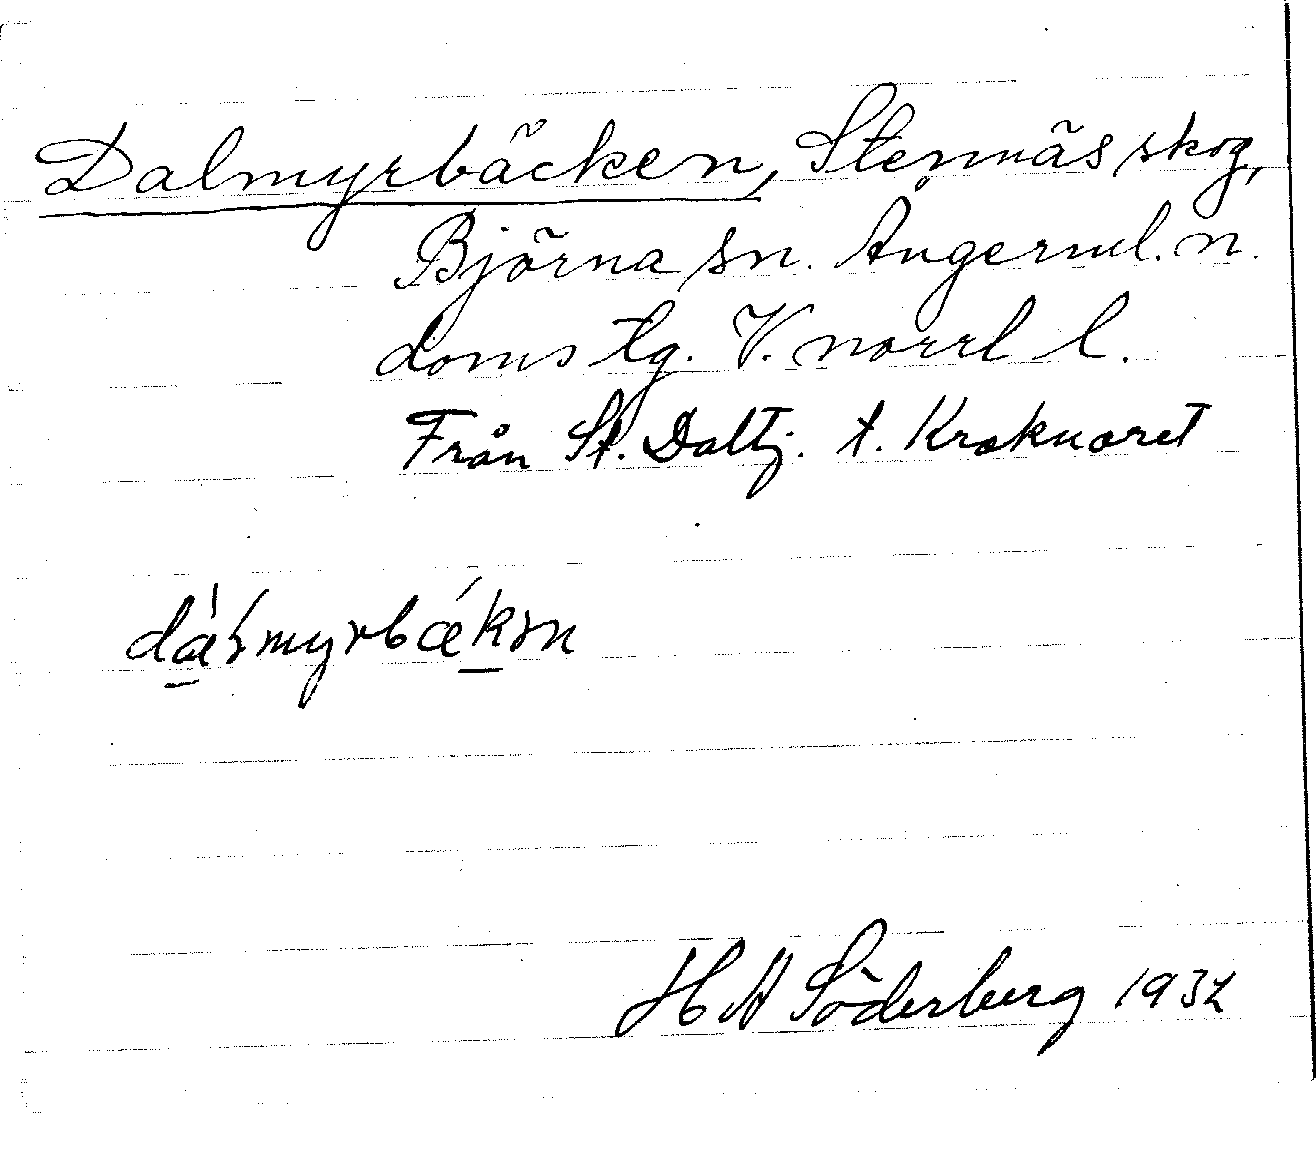 Dalmyrbäcken, Stennäs skog,
Björna sn. Ångerml. n.
doms tg. V. norrl l.
Från St. Daltj. t. Krokvaret
H A Söderberg 1932